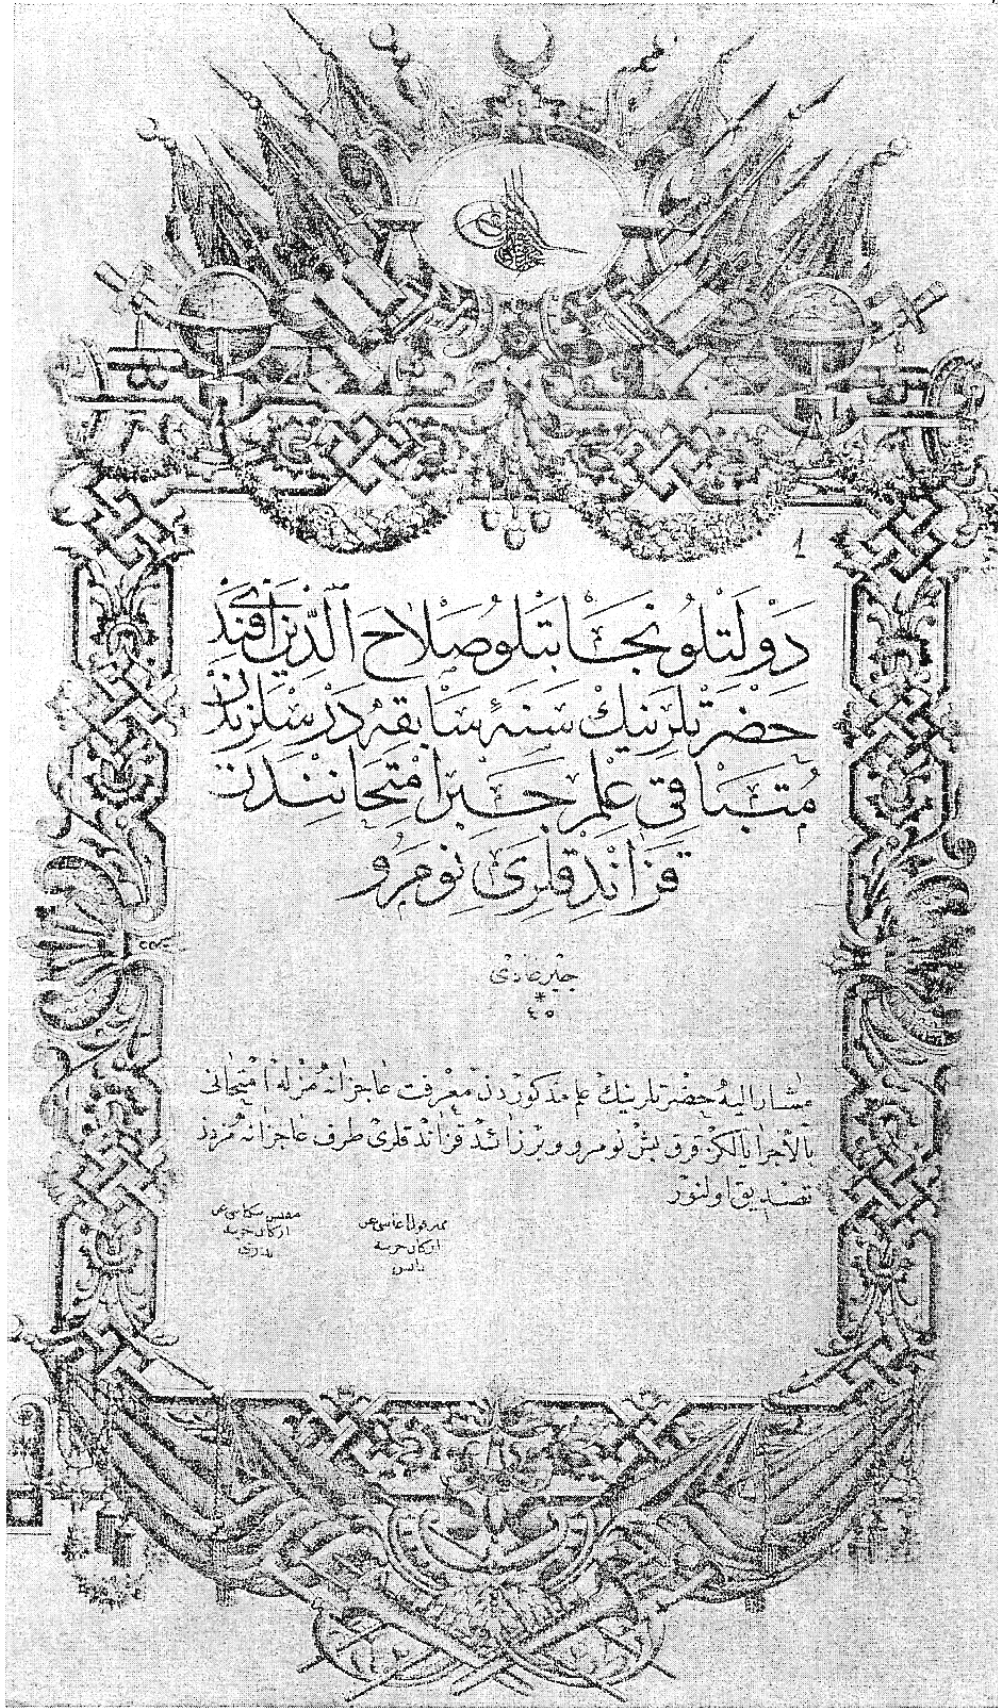 ١
دَوْلَتْلُو نَجَابَتْلُو صَلَاحَ الدِّين اَفَنْدِى
حَضْرَتْلَرِينِكْ سَنَهٔ سَابِقَه دَرْسْلَرِنْدَنْ
مُتَبَاقِى عِلْمِ جَبْر اِمْتِحَانِنْدَنْ
قَزَانْدِقْلَرِى نُومَرُو
جبر عادى
*
٤٥
مشار اليه حضرتلرينك علم مذكوردن معرفت عاجزانه مزله امتحانى
بالاجرا يالكز قرق بش نومرو و برزائد قزاندقلرى طرف عاجزانه مزدن
تصديق اولنور
اركان حربيه
اركان حربيه